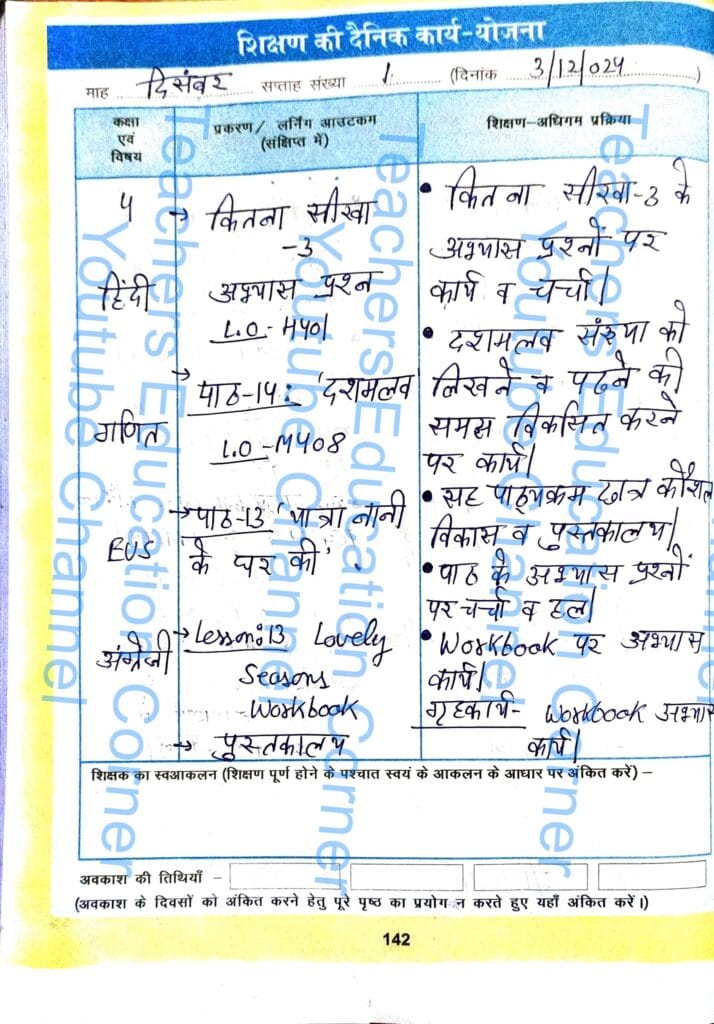 शिक्षण की दैनिक कार्य-योजना
माह दिसंबर सप्ताह संख्या 1. (दिनांक 3/12/024)
कक्षा
एवं
विषय
प्रकरण/ लर्निंग आउटकम
(संक्षिप्त में)
शिक्षण-अधिगम प्रक्रिया
4
हिंदी
→ कितना सीखा
-3
अभ्यास प्रश्न
L.O-H401
• कितना सीखा-3 के
अभ्यास प्रश्नों पर
कार्य व चर्चा।
गणित
→ पाठ-14: 'दशमलव
L.O-M408
• दशमलव संख्या को
लिखने व पढने की
समझ विकसित करने
पर कार्य।
EVS
→ पाठ-13 'यात्रा नानी
के घर की'.
• सह पाठ्यक्रम छात्र कौशल
विकास व पुस्तकालय।
• पाठ के अभ्यास प्रश्नों
पर चर्चा व हल।
अंग्रेजी
→ Lesson:13 Lovely
Seasons
-Workbook
→ पुस्तकालय
• Workbook पर अभ्यास
कार्य।
गृहकार्य- Workbook अभ्यास
कार्य।
शिक्षक का स्वआकलन (शिक्षण पूर्ण होने के पश्चात स्वयं के आकलन के आधार पर अंकित करें) –
अवकाश की तिथियाँ –
(अवकाश के दिवसों को अंकित करने हेतु पूरे पृष्ठ का प्रयोग न करते हुए यहाँ अंकित करें।)
142
Teachers Education Corner
Youtube Channel
Teachers Education Corner
Youtube Channel
Teachers Education Corner
Youtube Channel